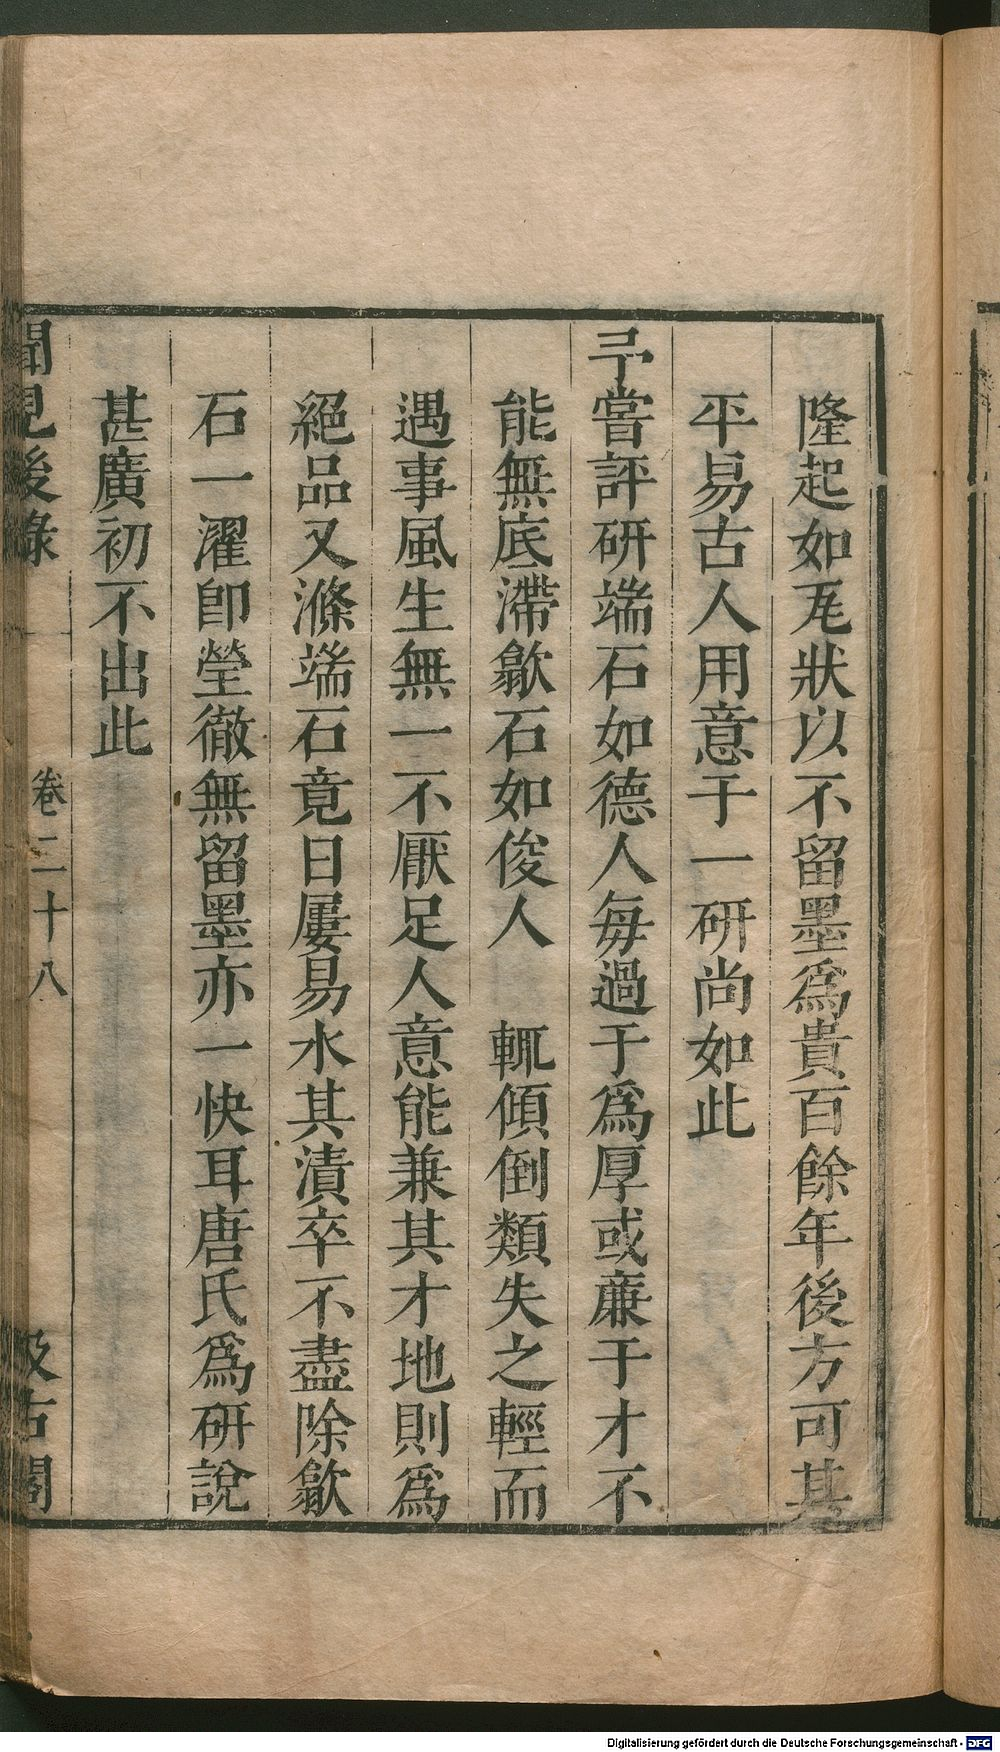 隆起如瓦狀以不留墨爲貴百餘年後方可其
平易古人用意于一研尚如此
予嘗評研端石如德人每過于爲厚或亷于才不
能無底滯歙石如俊人　輒傾倒類失之輕而
遇事風生無一不厭足人意能兼其才地則爲
絕品又滌端石竟日屢易水其漬卒不盡除歙
石一濯即瑩徹無留墨亦一快耳唐氏爲研說
甚廣初不出此
聞見後錄　卷二十八　汲古閣
Digitalisierung gefördert durch die Deutsche Forschungsgemeinschaft - DFG